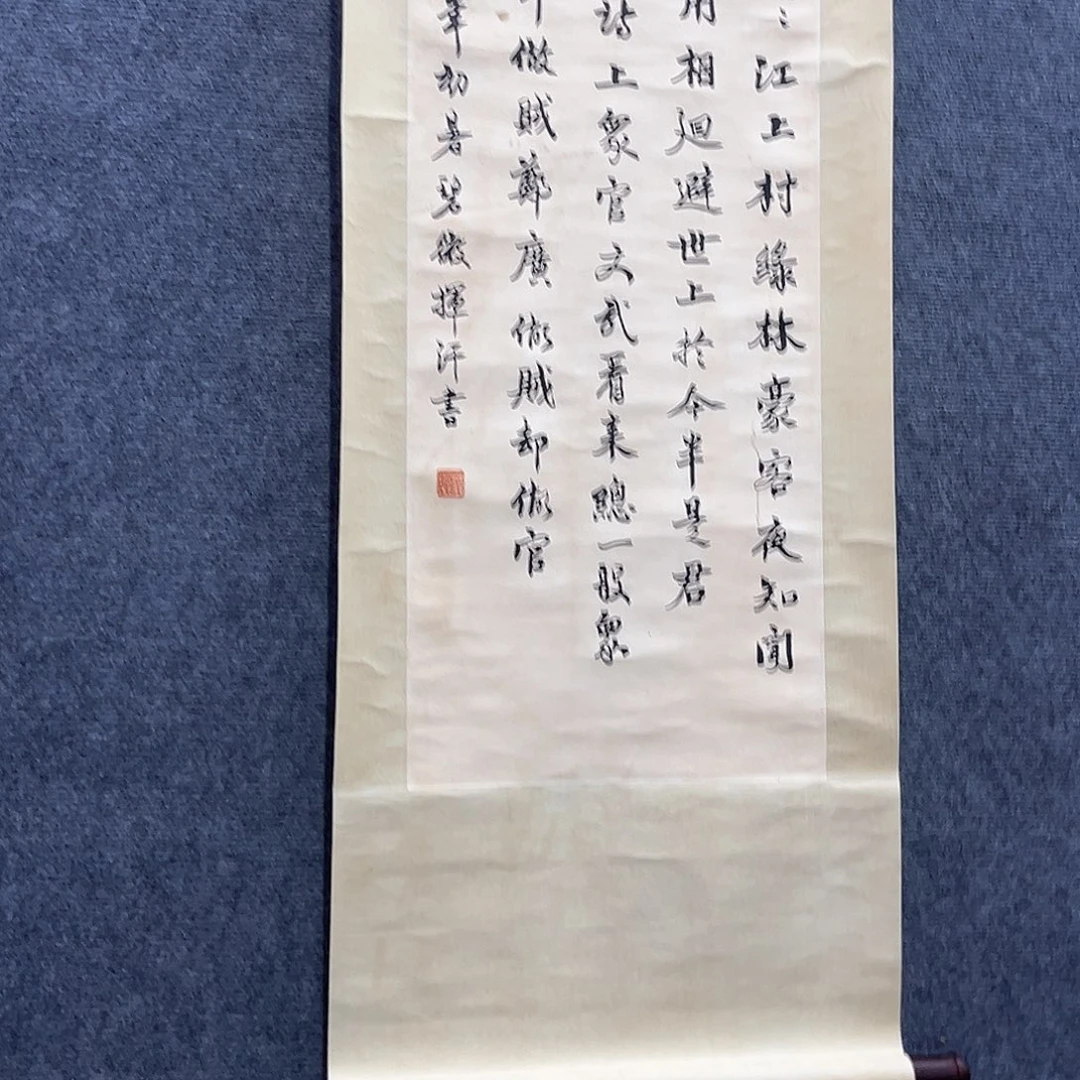 江上村綠林豪客夜知聞
用相迴避世上於今半是君
詩上衆官文武看來總一般衆
做賊鄭廣做賊却做官
初暑碧微揮汗書